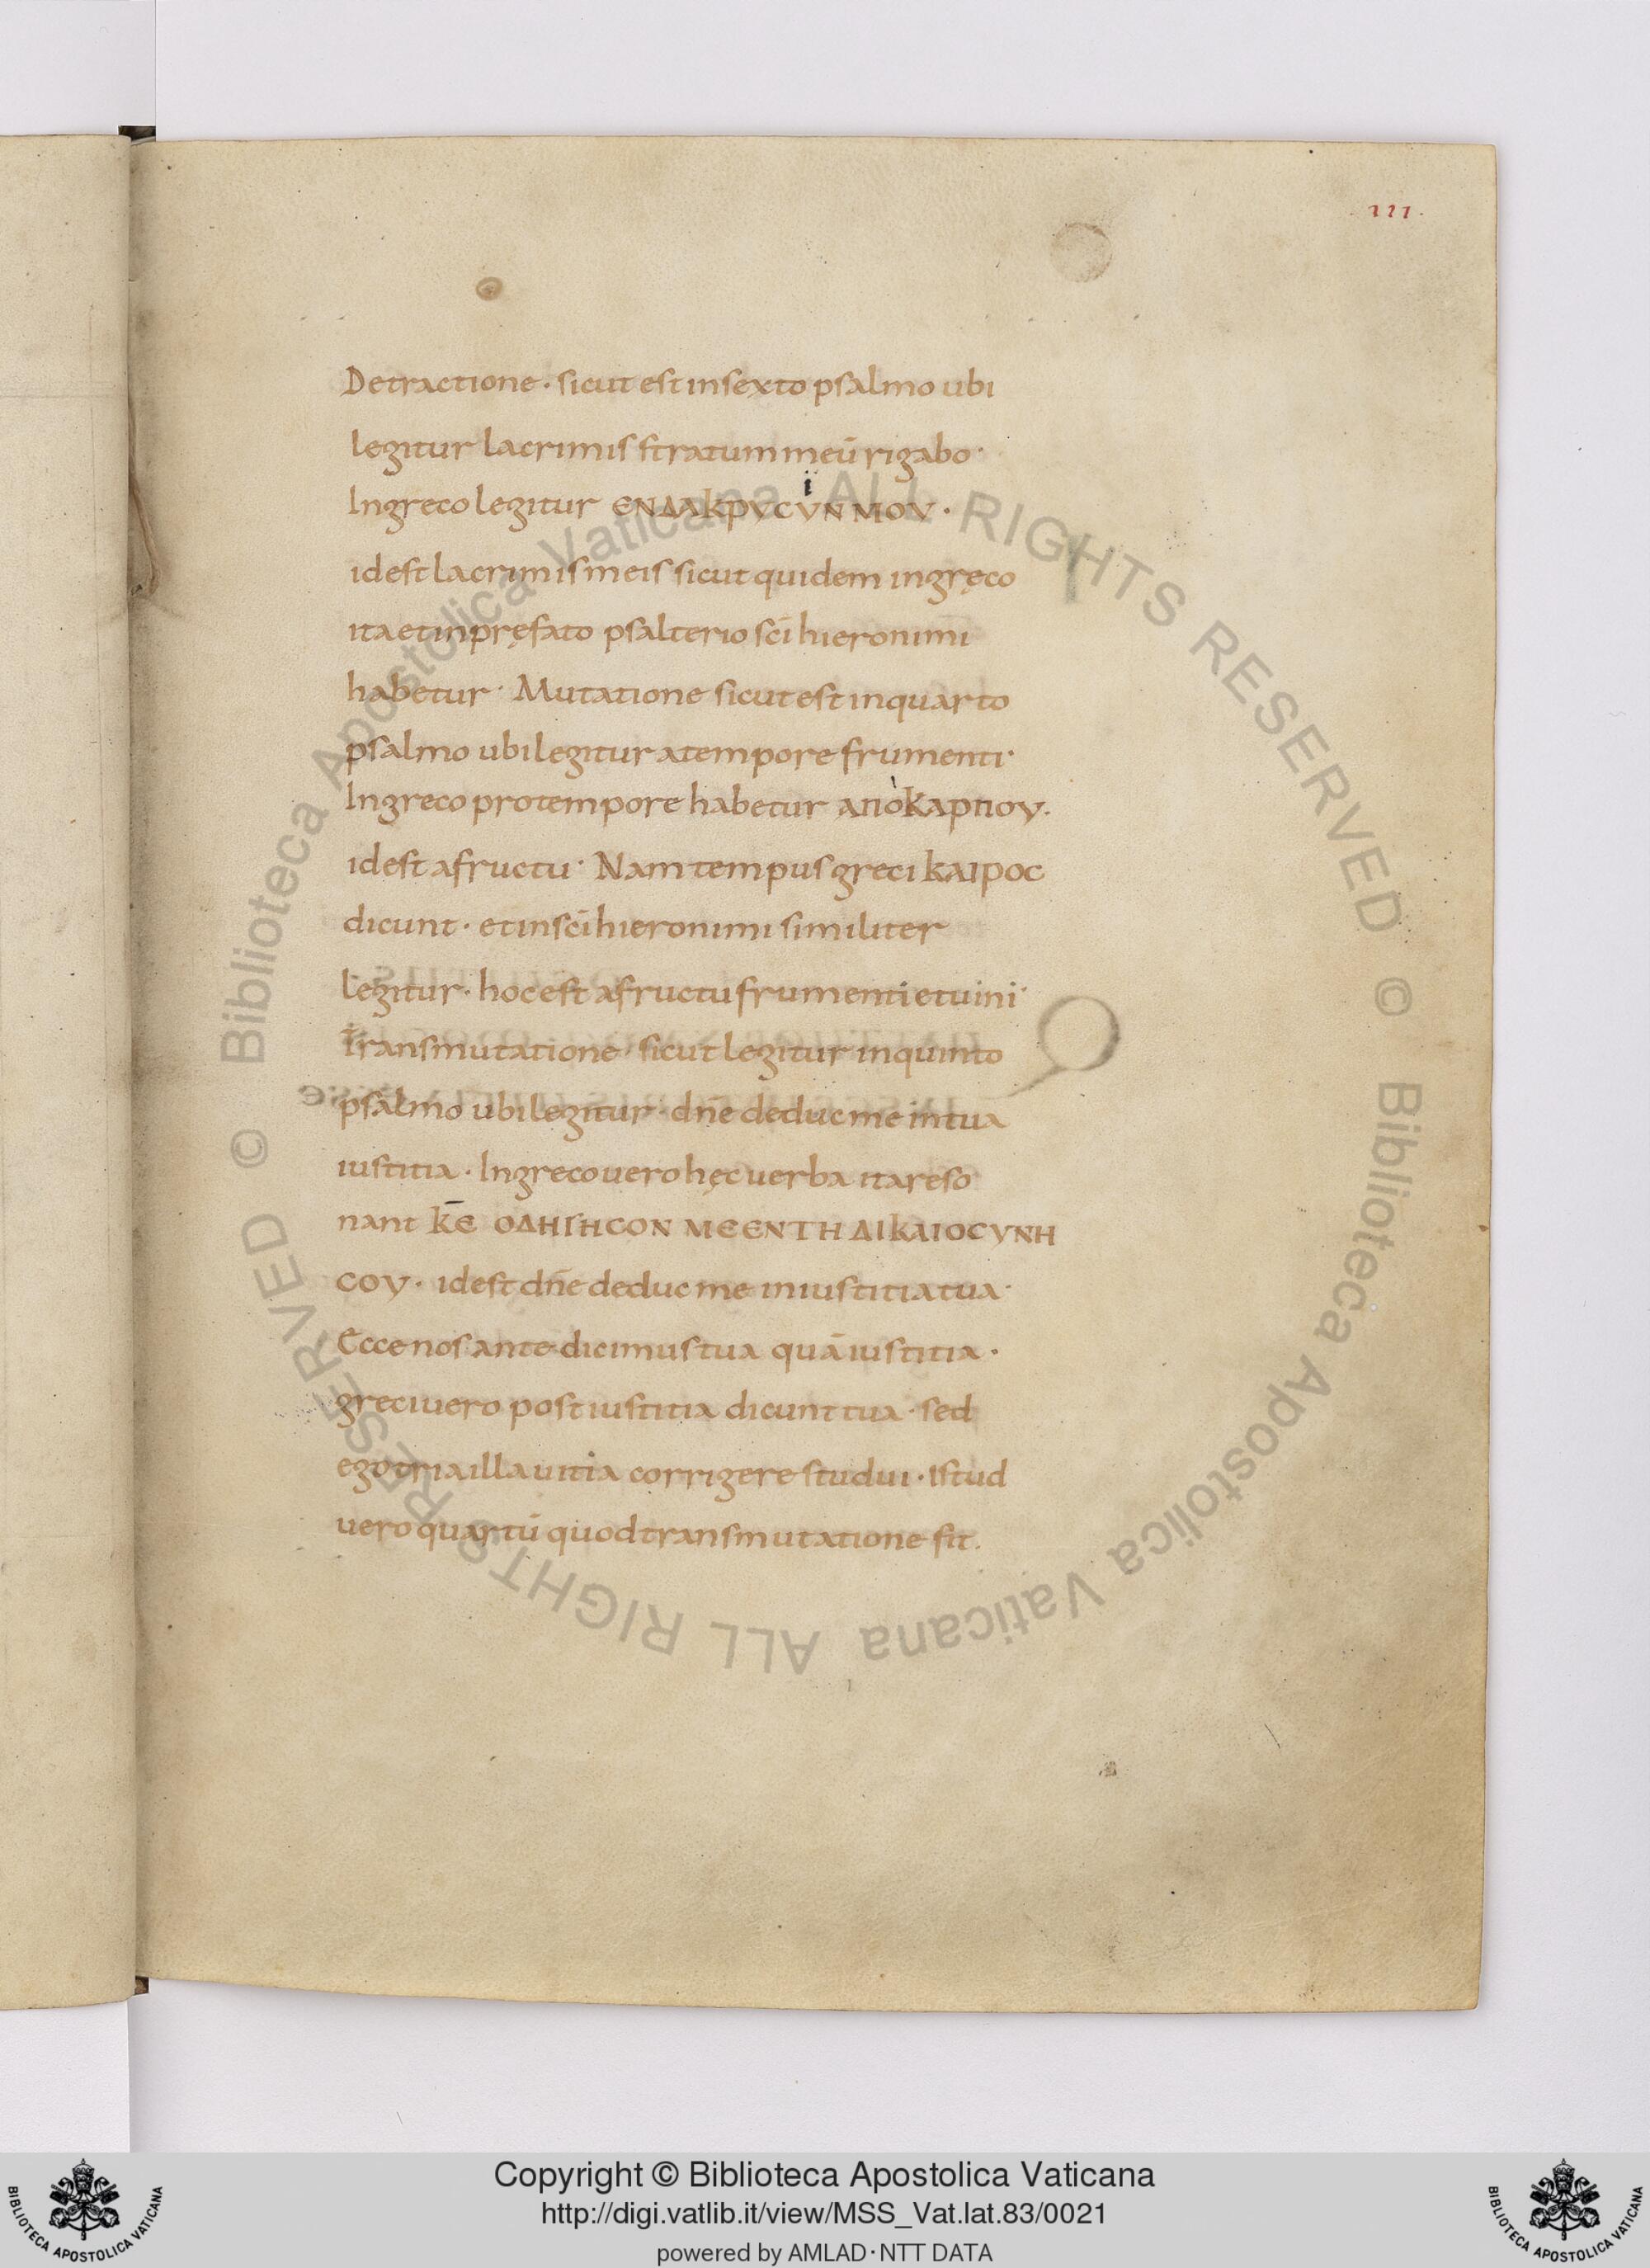 .111.
Detractione · sicut est in sexto psalmo ubi
legitur lacrimis stratum meū rigabo ·
In greco legitur ЄΝΔΑΚΡΥCΥΝ ΜΟΥ ·
id est lacrimis meis sicut quidem in gręco
ita et in pręfato psalterio scī hieronimi
habetur · Mutatione sicut est in quarto
psalmo ubi legitur a tempore frumenti ·
In greco pro tempore habetur ΑΠὸΚΑΡΠΟΥ ·
id est a fructu · Nam tempus greci ΚΑΙΡΟC
dicunt · et in scī hieronimi similiter
legitur · hoc est a fructu frumenti et uini ·
Transmutatione · sicut legitur in quinto
psalmo ubi legitur · dn̄e deduc me in tua
iustitia · In greco uero hęc uerba ita reso
nant ΚЄ̄ ΟΔΗΓΗCΟΝ ΜЄ ЄΝ ΤΗ ΔΙΚΑΙΟCΥΝΗ
CΟΥ · id est dn̄e deduc me in iustitia tua ·
Ecce nos ante dicimus tua quā iustitia ·
greci uero post iustitia dicunt tua · sed
ego tria illa uitia corrigere studui · Istud
uero quartū quod transmutatione fit.
© Biblioteca Apostolica Vaticana ALL RIGHTS RESERVED © Biblioteca Apostolica Vaticana ALL RIGHTS RESERVED
Copyright © Biblioteca Apostolica Vaticana
http://digi.vatlib.it/view/MSS_Vat.lat.83/0021
powered by AMLAD·NTT DATA
BIBLIOTECA APOSTOLICA VATICANA
BIBLIOTECA APOSTOLICA VATICANA